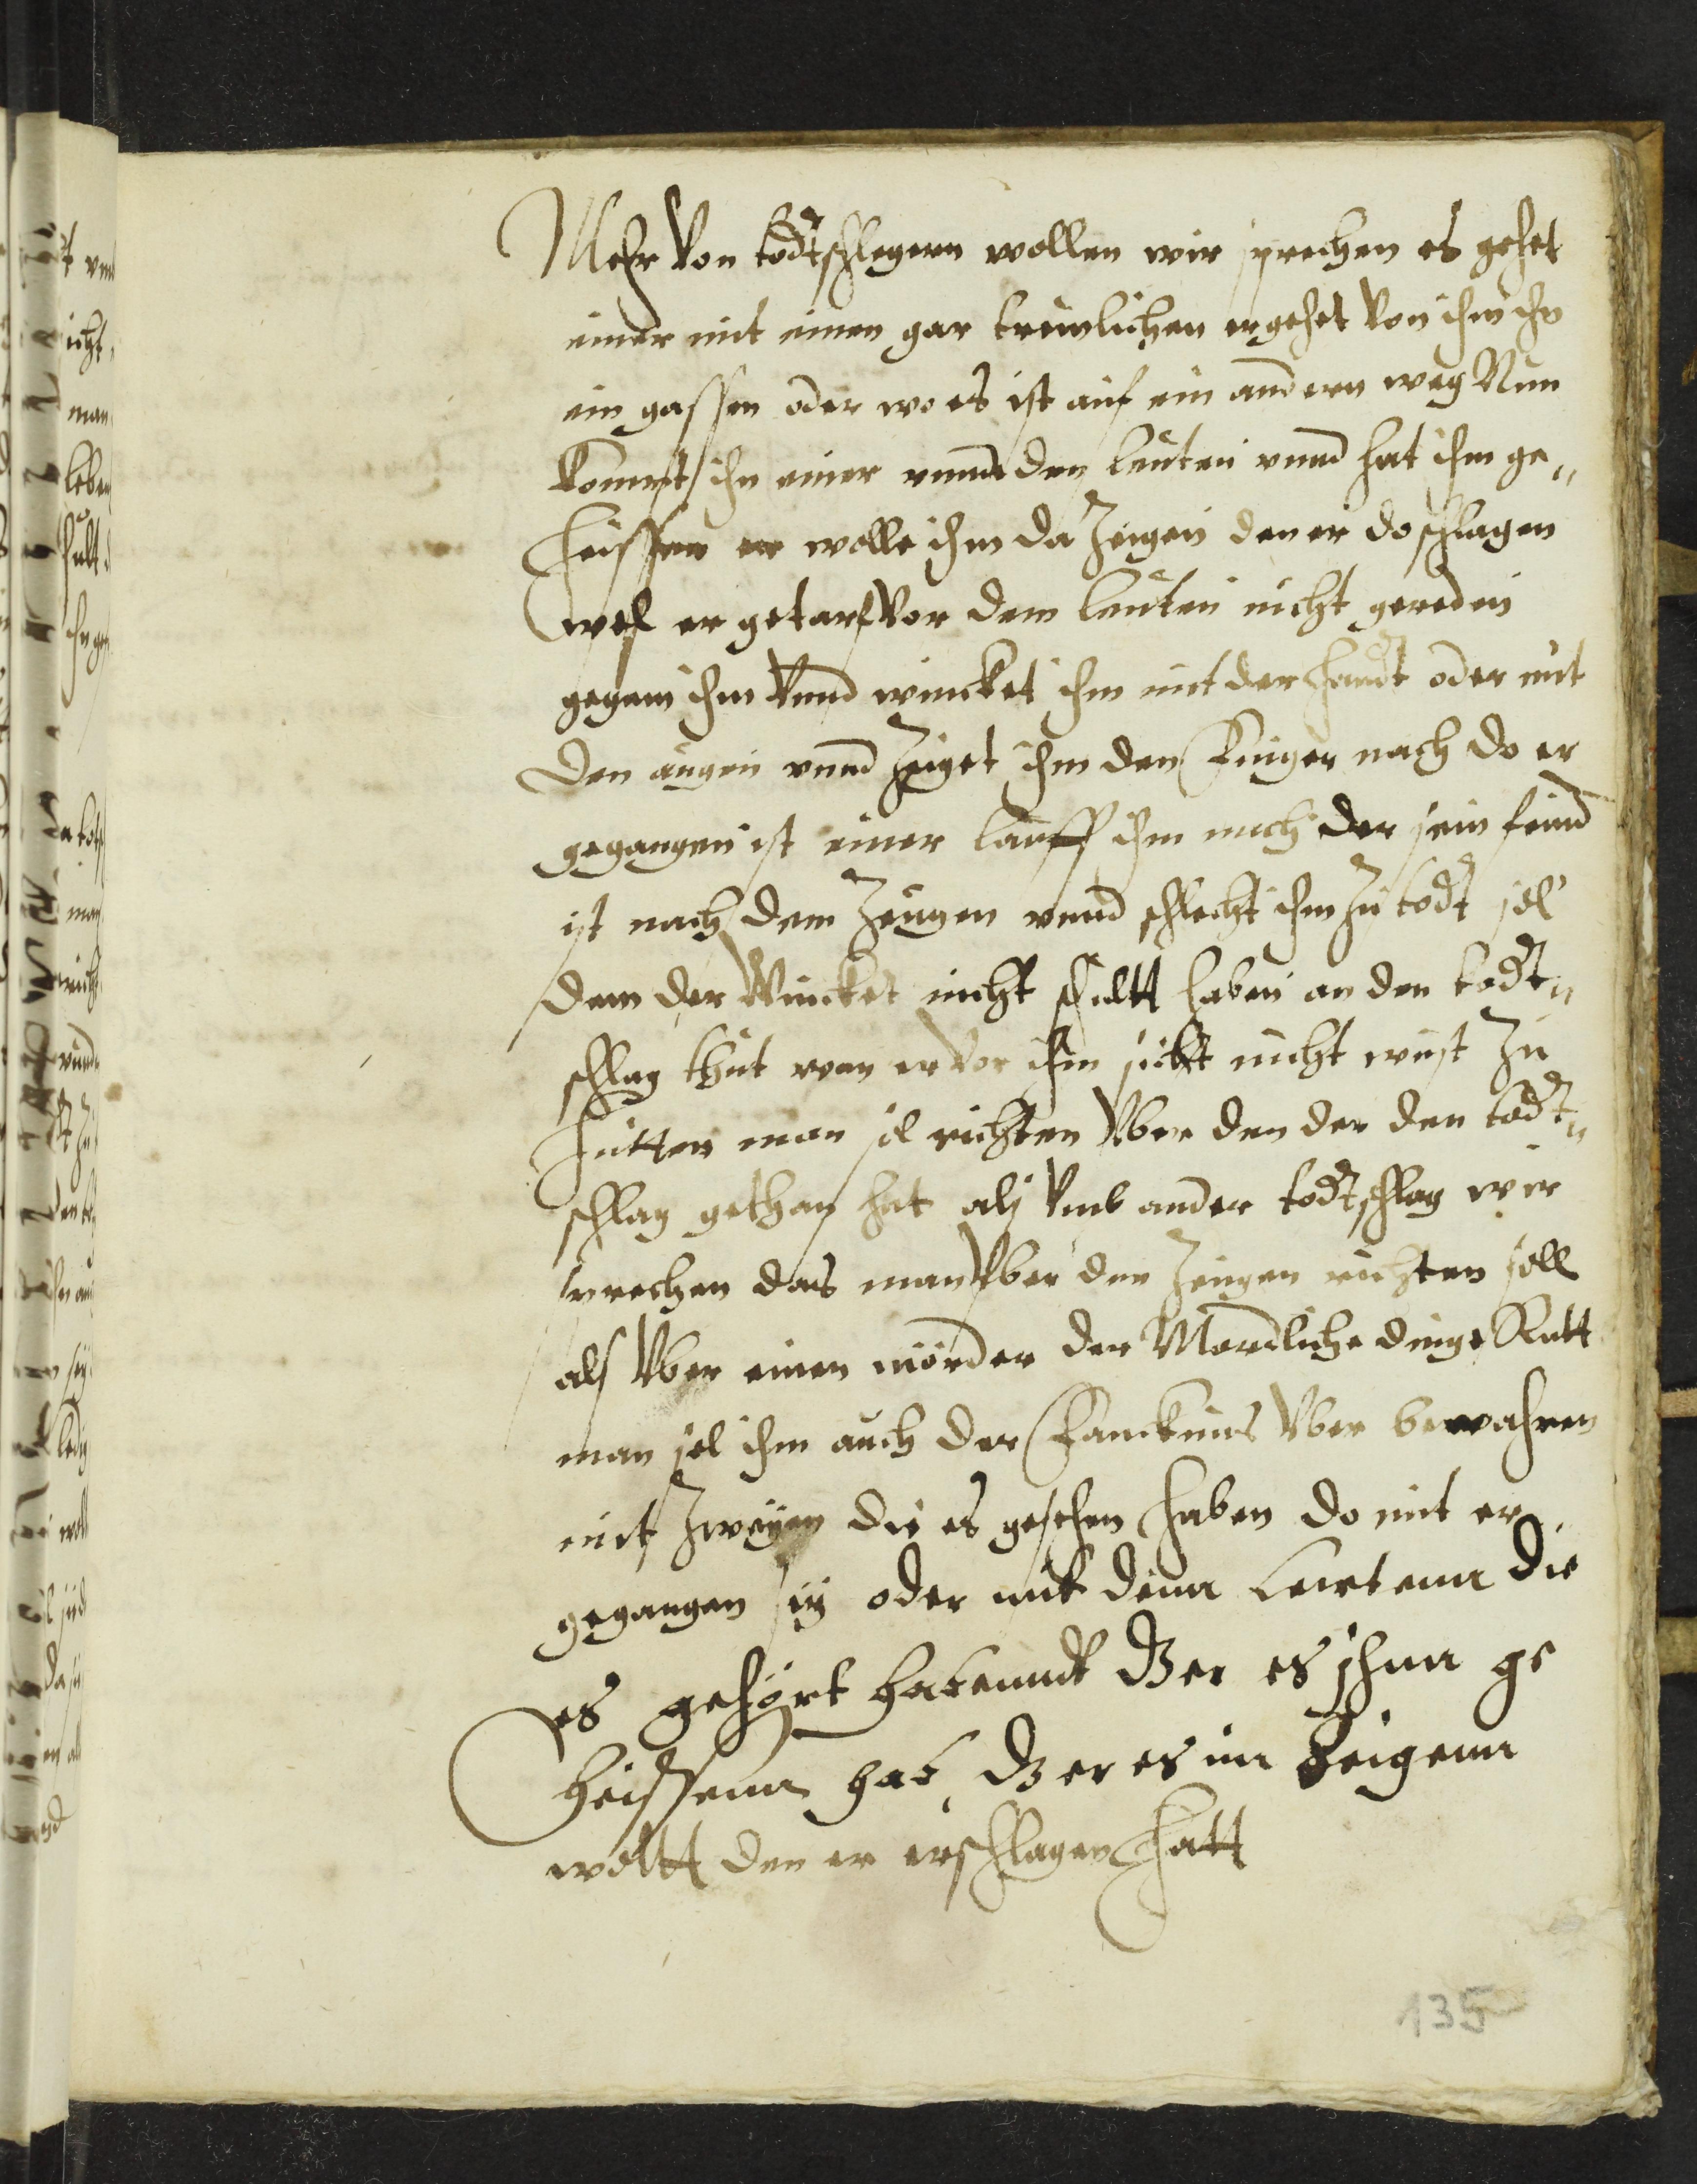 Mehr Von todtschlegern wollen wir sprechen es gehet
einer mit einen gar treiwlichen er gehet Von ihm ihn
ein gassen oder wo es ist auf ein andern weg Nun
kompt ihn einer vnnd den leuten vnnd hat ihm ge„
heissen er wolle ihm da zeigen den er do schlagen
wel er getarf Vor dem leuten nicht gereden
gegem ihm Vnnd wincket ihm mit der handt oder mit
den augen vnnd zeiget ihm den Finger nach do er
gegangen ist einer lauff ihm nach der sein feind
ist nach dem Zeugen vnnd schlecht ihm zu todt sol
dem der Wincket nicht schultt haben an den todt„
schlag thut wan er Vor ihm sichtt nicht wust zu
hutten man sol richten Vber den der den todt„
schlag gethan hat alß Vmb ander todtschlag wir
sprechen das man Vber den Zeugen richten soll
als Vber einen mörder der Mordliche dinge Rutt
man sol ihm auch der Vber bewahren
mit zweyen die es gesehen haben do mit er
gegangen sey oder mit denn Leutenn die
es gehört habenndt Der es ihnn ge
heissenn hab, Der es im Zeigenn
woltt den er erschlagen hatt
135